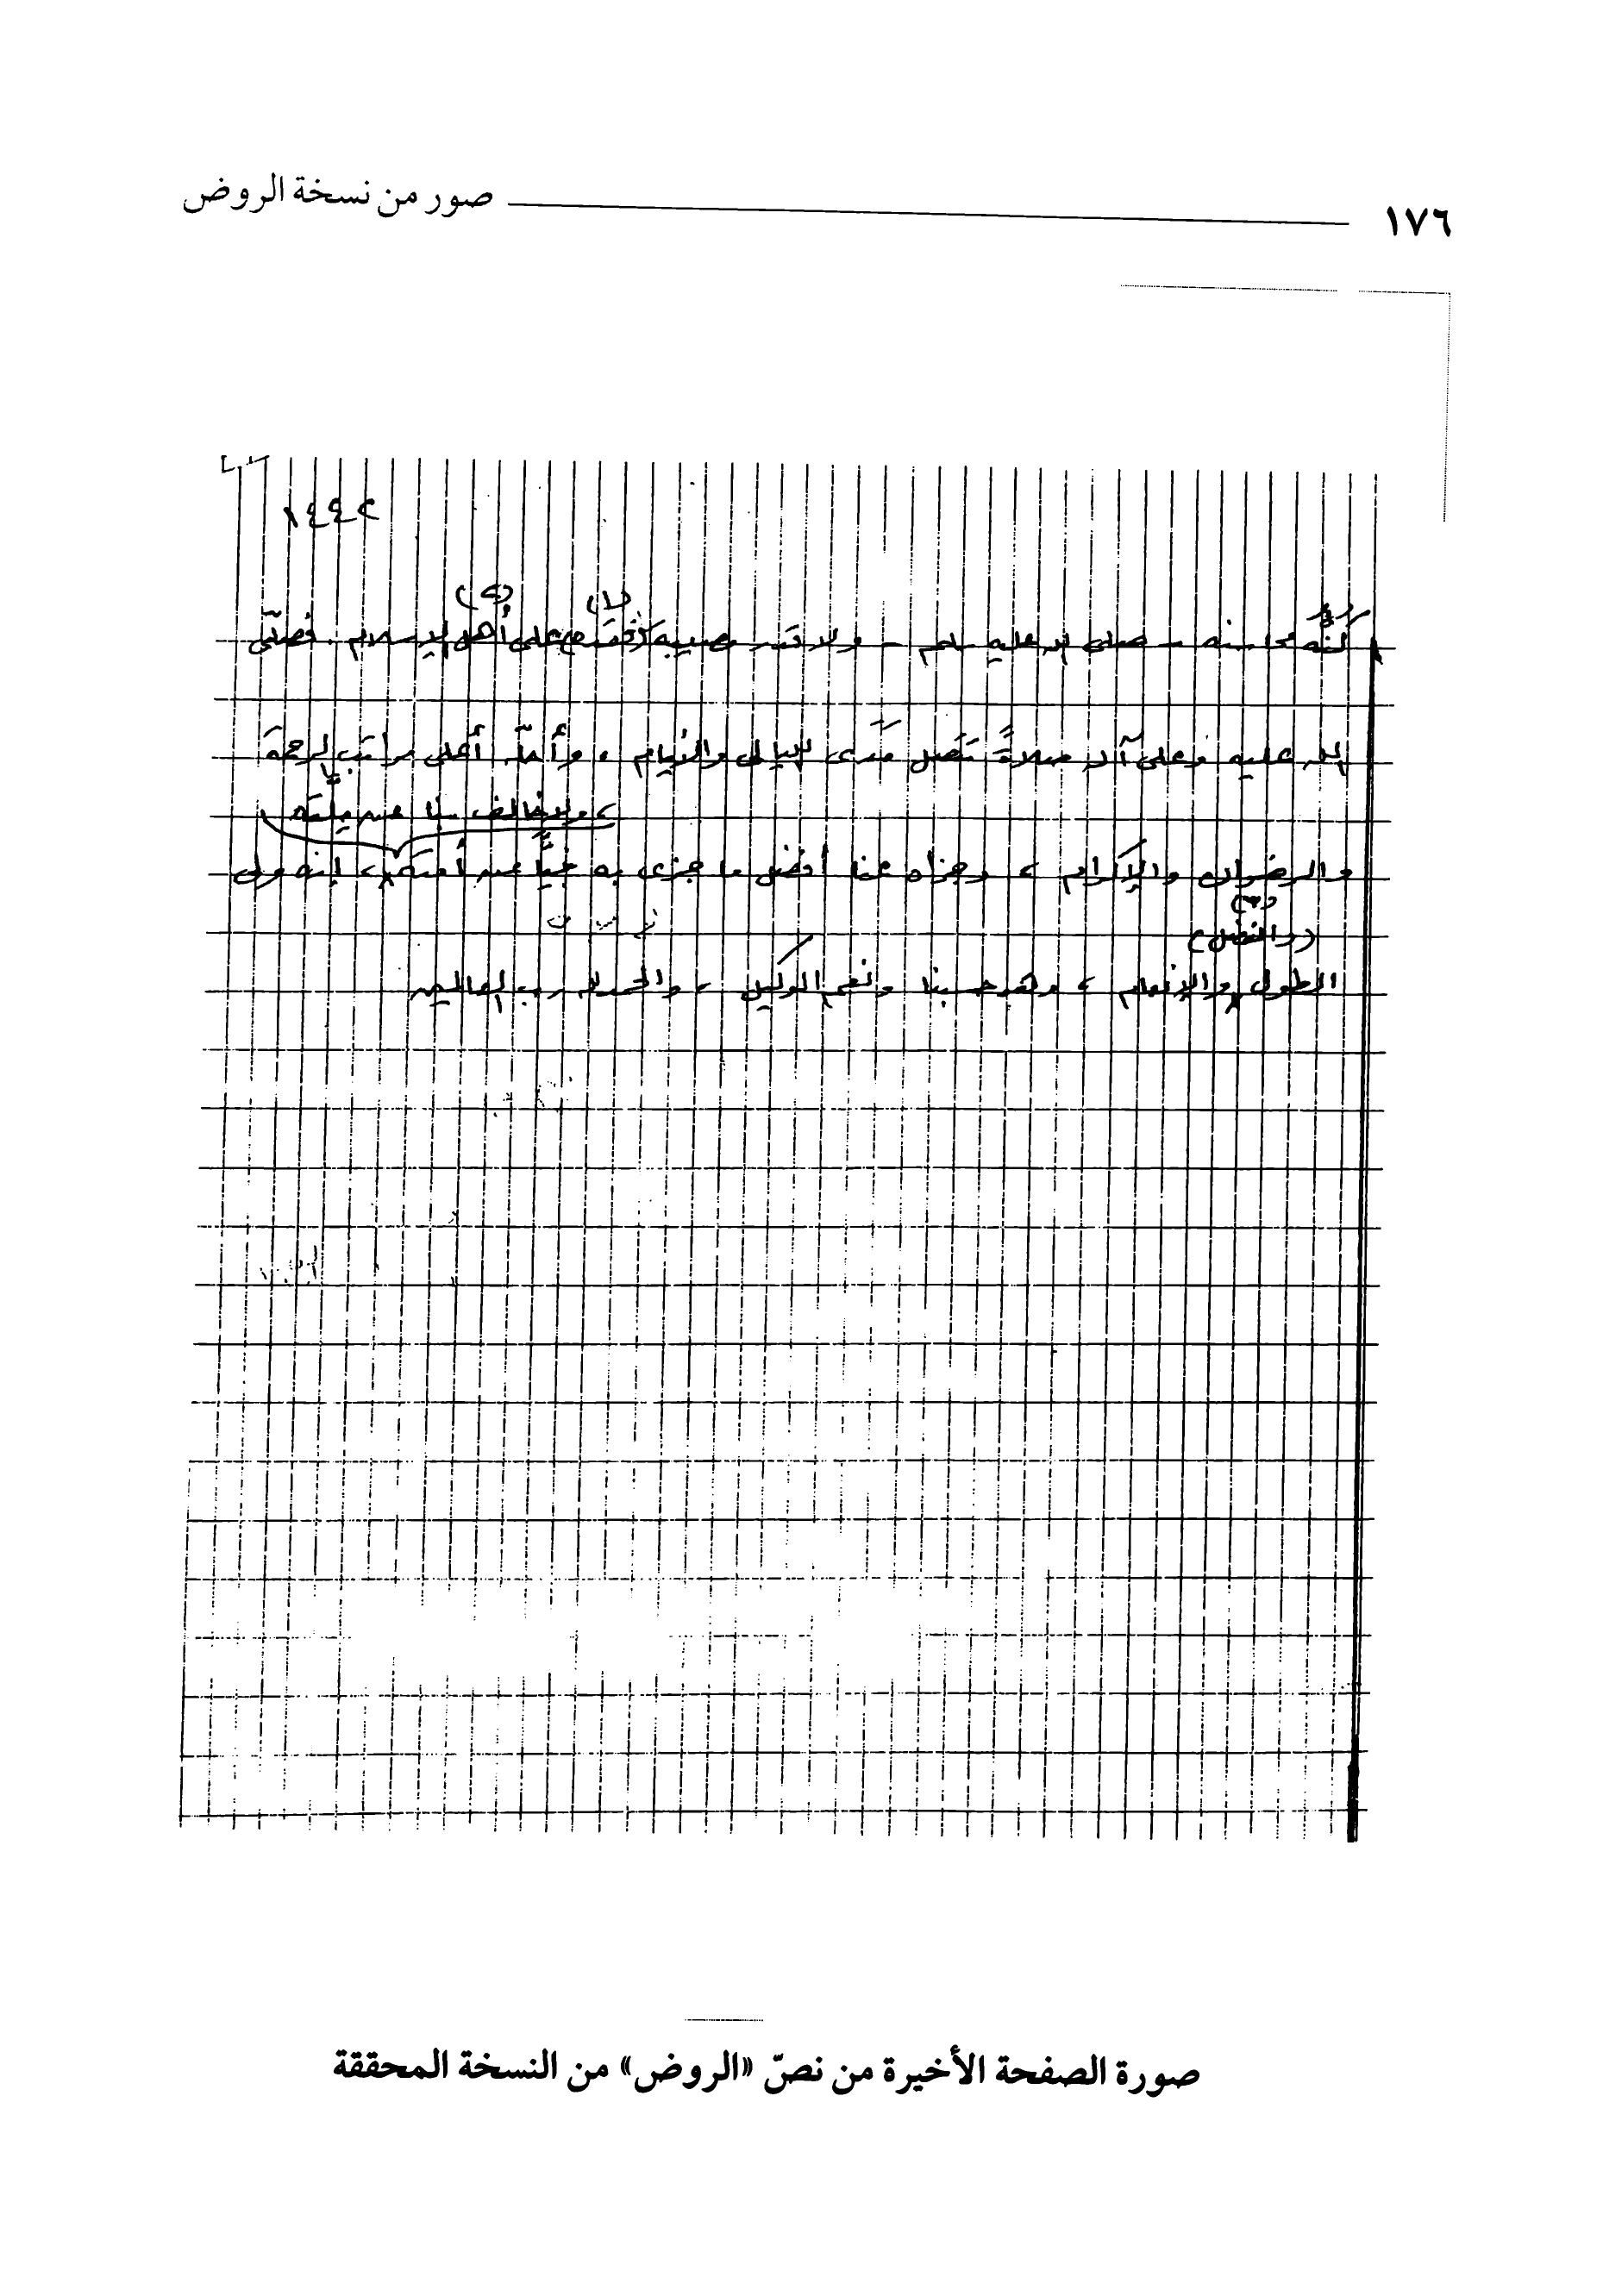 ١٧٦ صور من نسخة الروض
١٤٤٢
محاسنه - صلى الله عليه وسلم - ولا قدر مصيبة فقده (١) على أهل (٢) الإسلام. فصلّى
الله عليه وعلى آله صلاةً تتصل مَدَى الليالي والأيام، وأحلّه أعلى مراتب الرحمة
، ولا خالف بنا عن ملّته
والرضوان والإكرام، وجزاه عنا أفضل ما جزى به نبيًّا عن أمته، إنه ولي
(٣)
(والفضل)
الطول والإنعام، وهو حسبنا ونعم الوكيل، والحمد لله رب العالمين
صورة الصفحة الأخيرة من نصّ «الروض» من النسخة المحققة